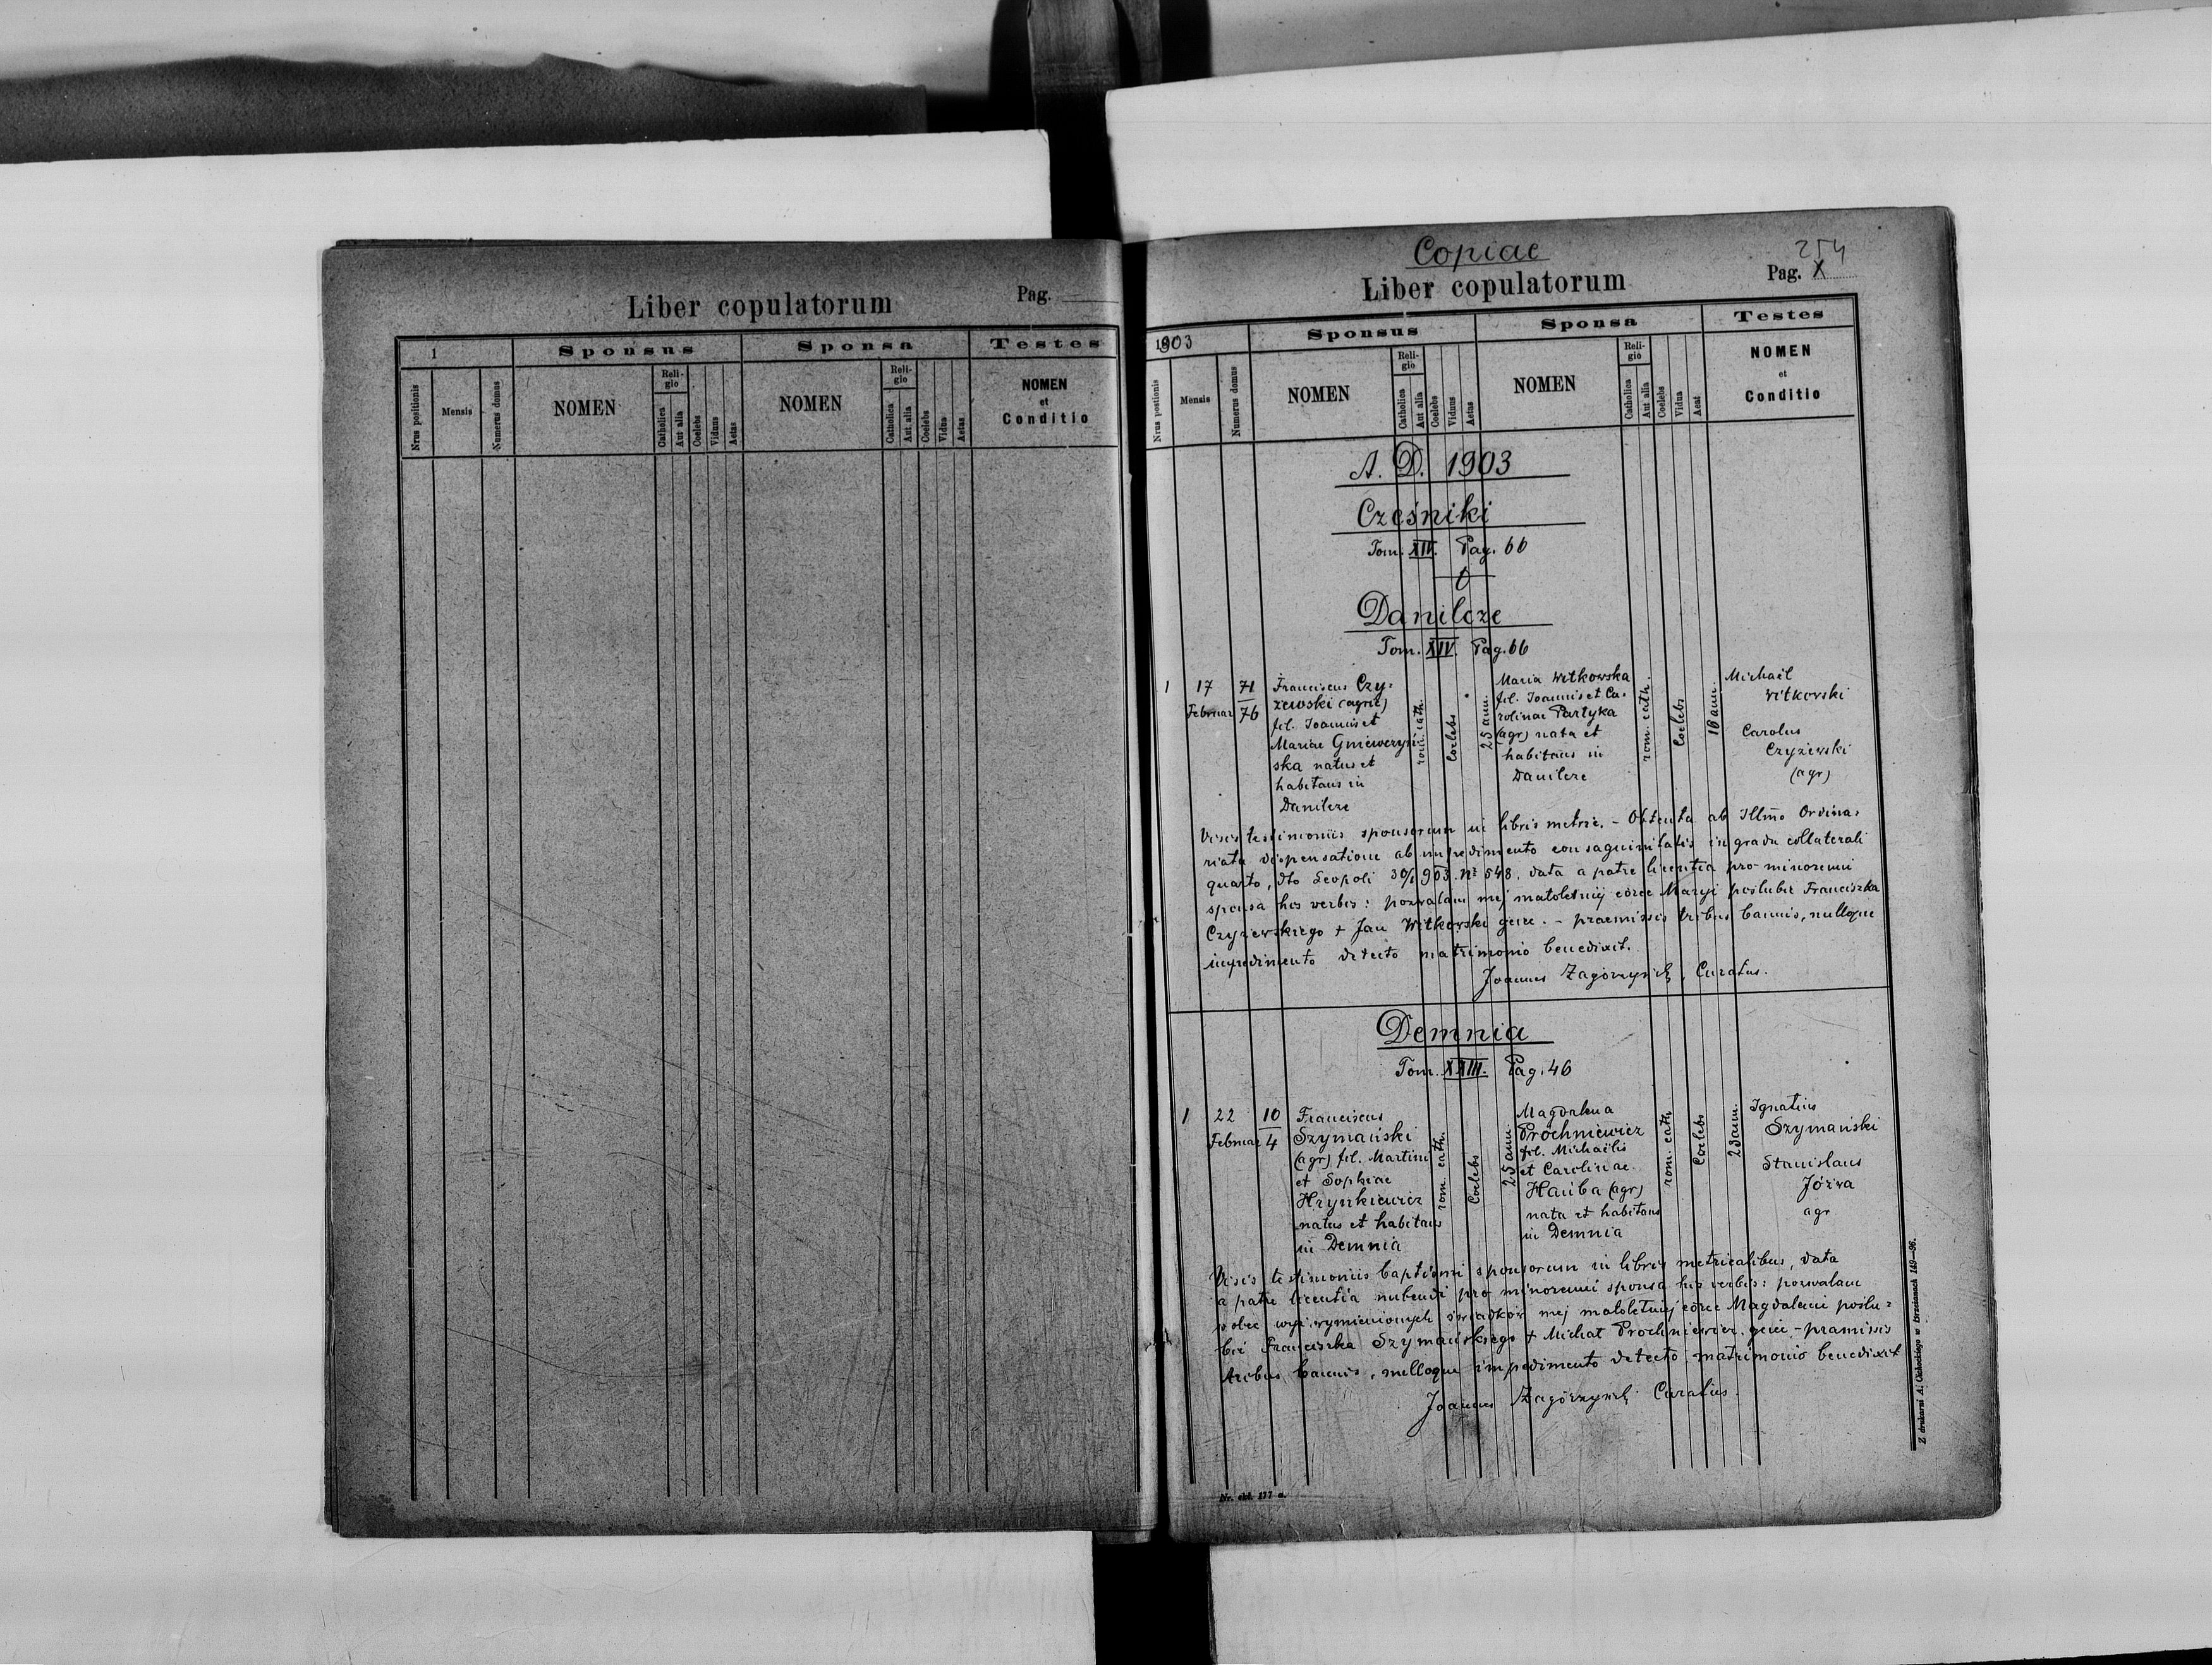 Liber copulatorum
Pag.
1
Sponsus
Sponsa
Testes
Nrus positionis
Mensis
Numerus domus
NOMEN
Religio
Catholica
Aut alia
Coelebs
Viduus
Aetas
NOMEN
Religio
Catholica
Aut alia
Coelebs
Vidua
Aetas
NOMEN
et
Conditio
Copiae
254
Liber copulatorum
Pag. X
1903
Sponsus
Sponsa
Testes
Nrus postionis
Mensis
Numerus domus
NOMEN
Religio
Catholica
Aut alia
Coelebs
Viduus
Aetas
NOMEN
Religio
Catholica
Aut alia
Coelebs
Vidua
Aeat
NOMEN
et
Conditio
A. D. 1903
Cześniki
Tom. XIV. Pag. 66
0
Danilcze
Tom. XIV. Pag. 66
1
17
Februar
71
76
Franciscus Czy-
żewski (agr)
fil. Joannis et
Mariae
natus et
habitans in
Danilcze
rom. cath.
Coelebs
25 ann.
Maria Witkowska
fil. Joannis et Ca-
rolinae Partyka
(agr) nata et
habitans in
Danilcze
rom. cath.
Coelebs
18 ann.
Michaël
Witkowski
Carolus
Czyżewski
(agr)
Visis testimoniis sponsorum in libris metric. - Obtenta ab Illmo Ordina-
riatu dispensatione ab impedimento consaguinitatis in gradu collaterali
quarto, dto Leopoli 30/1 903. Nr 548, data a patre licentia pro minorenni
sponsa his verbis: pozwalam mej małoletniej córce Maryi poślubić Franciszka
Czyżewskiego + Jan Witkowski - praemissis tribus bannis, nulloque
impedimento detecto matrimonio benedixit.
Joannes Curatus.
Demnia
Tom. XXIII. Pag. 46
1
22
Februar
10
4
Franciscus
Szymański
(agr) fil. Martini
et Sophiae
Hrynkiewicz
natus et habitans
in Demnia
rom. cath.
Coelebs
25 ann.
Magdalena
Próchniewicz
fil. Michaëlis
et Carolinae
Hańba (agr)
nata et habitans
in Demnia
rom. cath.
Coelebs
23 ann.
Ignatius
Szymański
Stanislaus
Józwa
agr
Visis testimoniis baptismi sponsorum in libris metricalibus, data
a patre licentia nubendi pro minorenni sponsa his verbis: pozwalam
wobec wyż. wymienionych świadków mej małoletniej córce Magdaleni poślu-
bić Franciszka Szymańskiego + Michał Próchniewicz - pramissis
tribus bannis, nulloque impedimento detecto matrimonio benedixit
Joannes Curatus.
Nr. skl. 177 a.
Z drukarni A. Cichockiego w Brzeżanach 149—96.